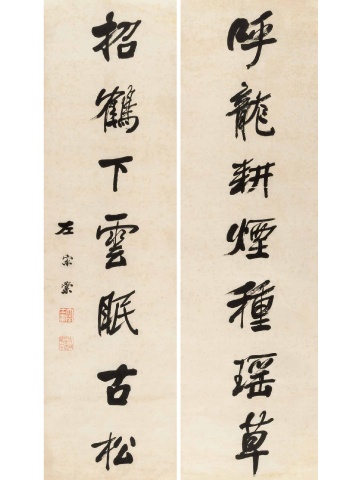 呼龍耕煙種瑶草
招鶴下雲眠古松
左宗棠